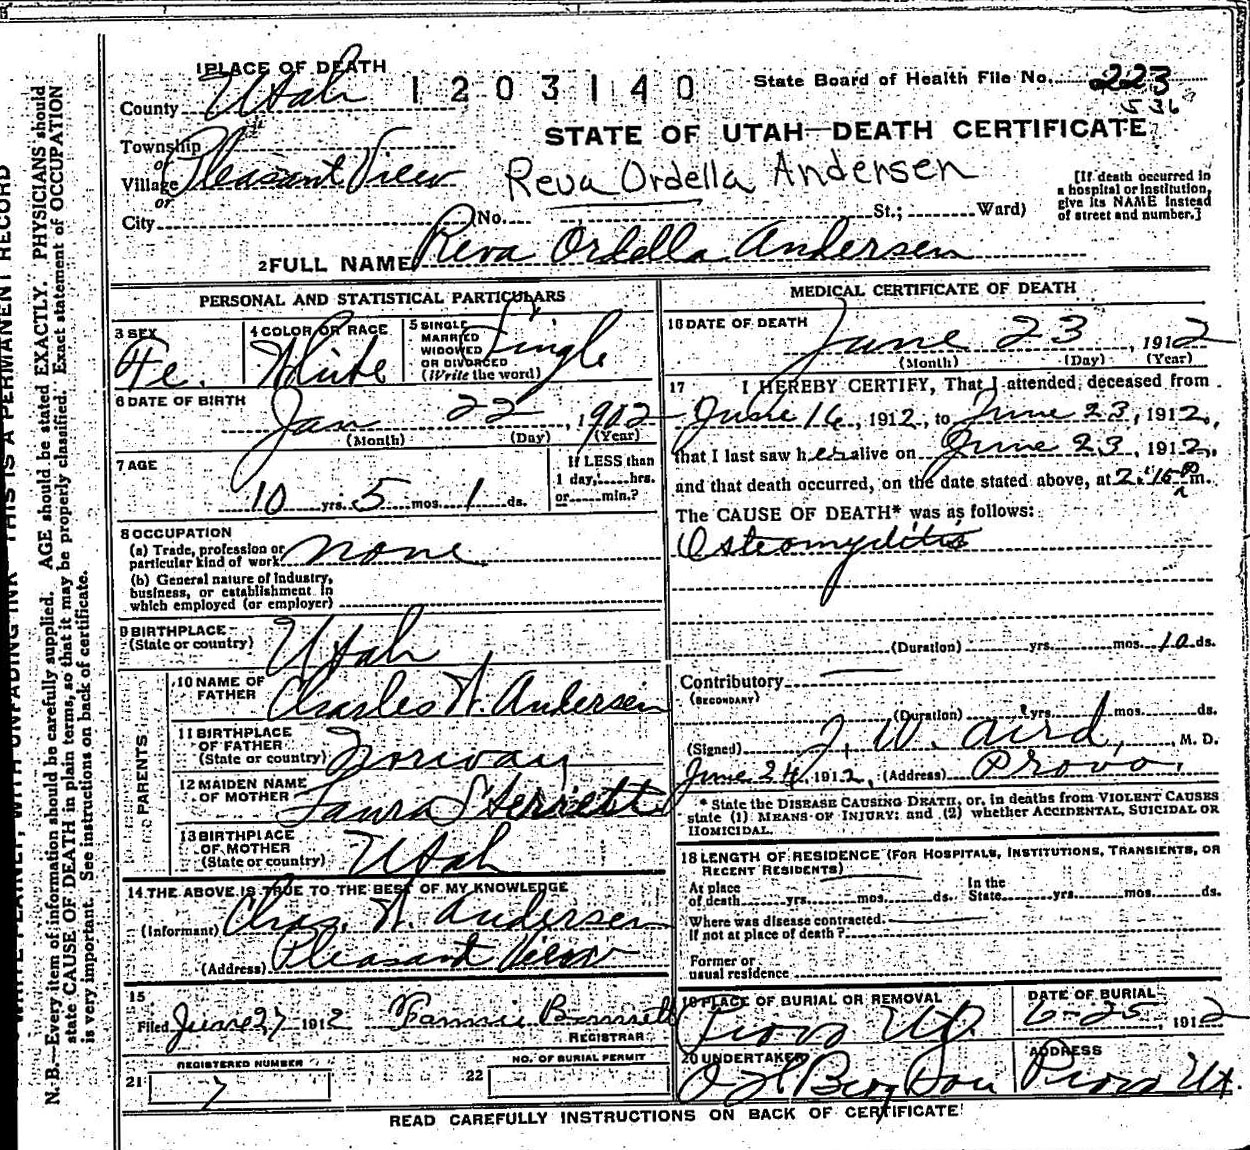 1 PLACE OF DEATH
1203140
State Board of Health File No. 223
536
County Utah
STATE OF UTAH—DEATH CERTIFICATE
Township
or
Village Pleasant View
or
Reva Ordella Andersen
[If death occurred in
a hospital or institution,
give its NAME instead
of street and number.]
City No. St.; Ward)
2 FULL NAME Reva Ordella Andersen
PERSONAL AND STATISTICAL PARTICULARS
3 SEX
Fe.
4 COLOR OR RACE
White
5 SINGLE
MARRIED
WIDOWED
OR DIVORCED
(Write the word)
Single
6 DATE OF BIRTH
Jan 22, 1902
(Month) (Day) (Year)
7 AGE
10 yrs. 5 mos. 1 ds.
If LESS than
1 day, hrs.
or min.?
8 OCCUPATION
(a) Trade, profession or
particular kind of work none
(b) General nature of industry,
business, or establishment in
which employed (or employer)
9 BIRTHPLACE
(State or country) Utah
PARENTS
10 NAME OF
FATHER Charles W. Andersen
11 BIRTHPLACE
OF FATHER
(State or country) Norway
12 MAIDEN NAME
OF MOTHER Laura
13 BIRTHPLACE
OF MOTHER
(State or country) Utah
14 THE ABOVE IS TRUE TO THE BEST OF MY KNOWLEDGE
(Informant) Chas. W. Andersen
(Address) Pleasant View
15
Filed June 27 1912
REGISTRAR
REGISTERED NUMBER
21 7
NO. OF BURIAL PERMIT
22
MEDICAL CERTIFICATE OF DEATH
16 DATE OF DEATH
June 23, 1912
(Month) (Day) (Year)
17 I HEREBY CERTIFY, That I attended deceased from
June 16, 1912, to June 23, 1912,
that I last saw her alive on June 23, 1912,
and that death occurred, on the date stated above, at 2:15 P m.
The CAUSE OF DEATH* was as follows:
Osteomyelitis
(Duration) yrs. mos. 10 ds.
Contributory
(SECONDARY)
(Duration) yrs. mos. ds.
(Signed) J. W. Aird, M. D.
June 24, 1912, (Address) Provo.
* State the DISEASE CAUSING DEATH, or, in deaths from VIOLENT CAUSES
state (1) MEANS OF INJURY; and (2) whether ACCIDENTAL, SUICIDAL OR
HOMICIDAL.
18 LENGTH OF RESIDENCE (FOR HOSPITALS, INSTITUTIONS, TRANSIENTS, OR
RECENT RESIDENTS)
At place
of death yrs. mos. ds.
In the
State yrs. mos. ds.
Where was disease contracted.
If not at place of death?
Former or
usual residence
19 PLACE OF BURIAL OR REMOVAL
Provo Ut.
DATE OF BURIAL
6-25, 1912
20 UNDERTAKER
ADDRESS
Provo Ut.
READ CAREFULLY INSTRUCTIONS ON BACK OF CERTIFICATE
WRITE PLAINLY, WITH UNFADING INK THIS IS A PERMANENT RECORD
N. B.—Every item of information should be carefully supplied. AGE should be stated EXACTLY. PHYSICIANS should
state CAUSE OF DEATH in plain terms, so that it may be properly classified. Exact statement of OCCUPATION
is very important. See instructions on back of certificate.